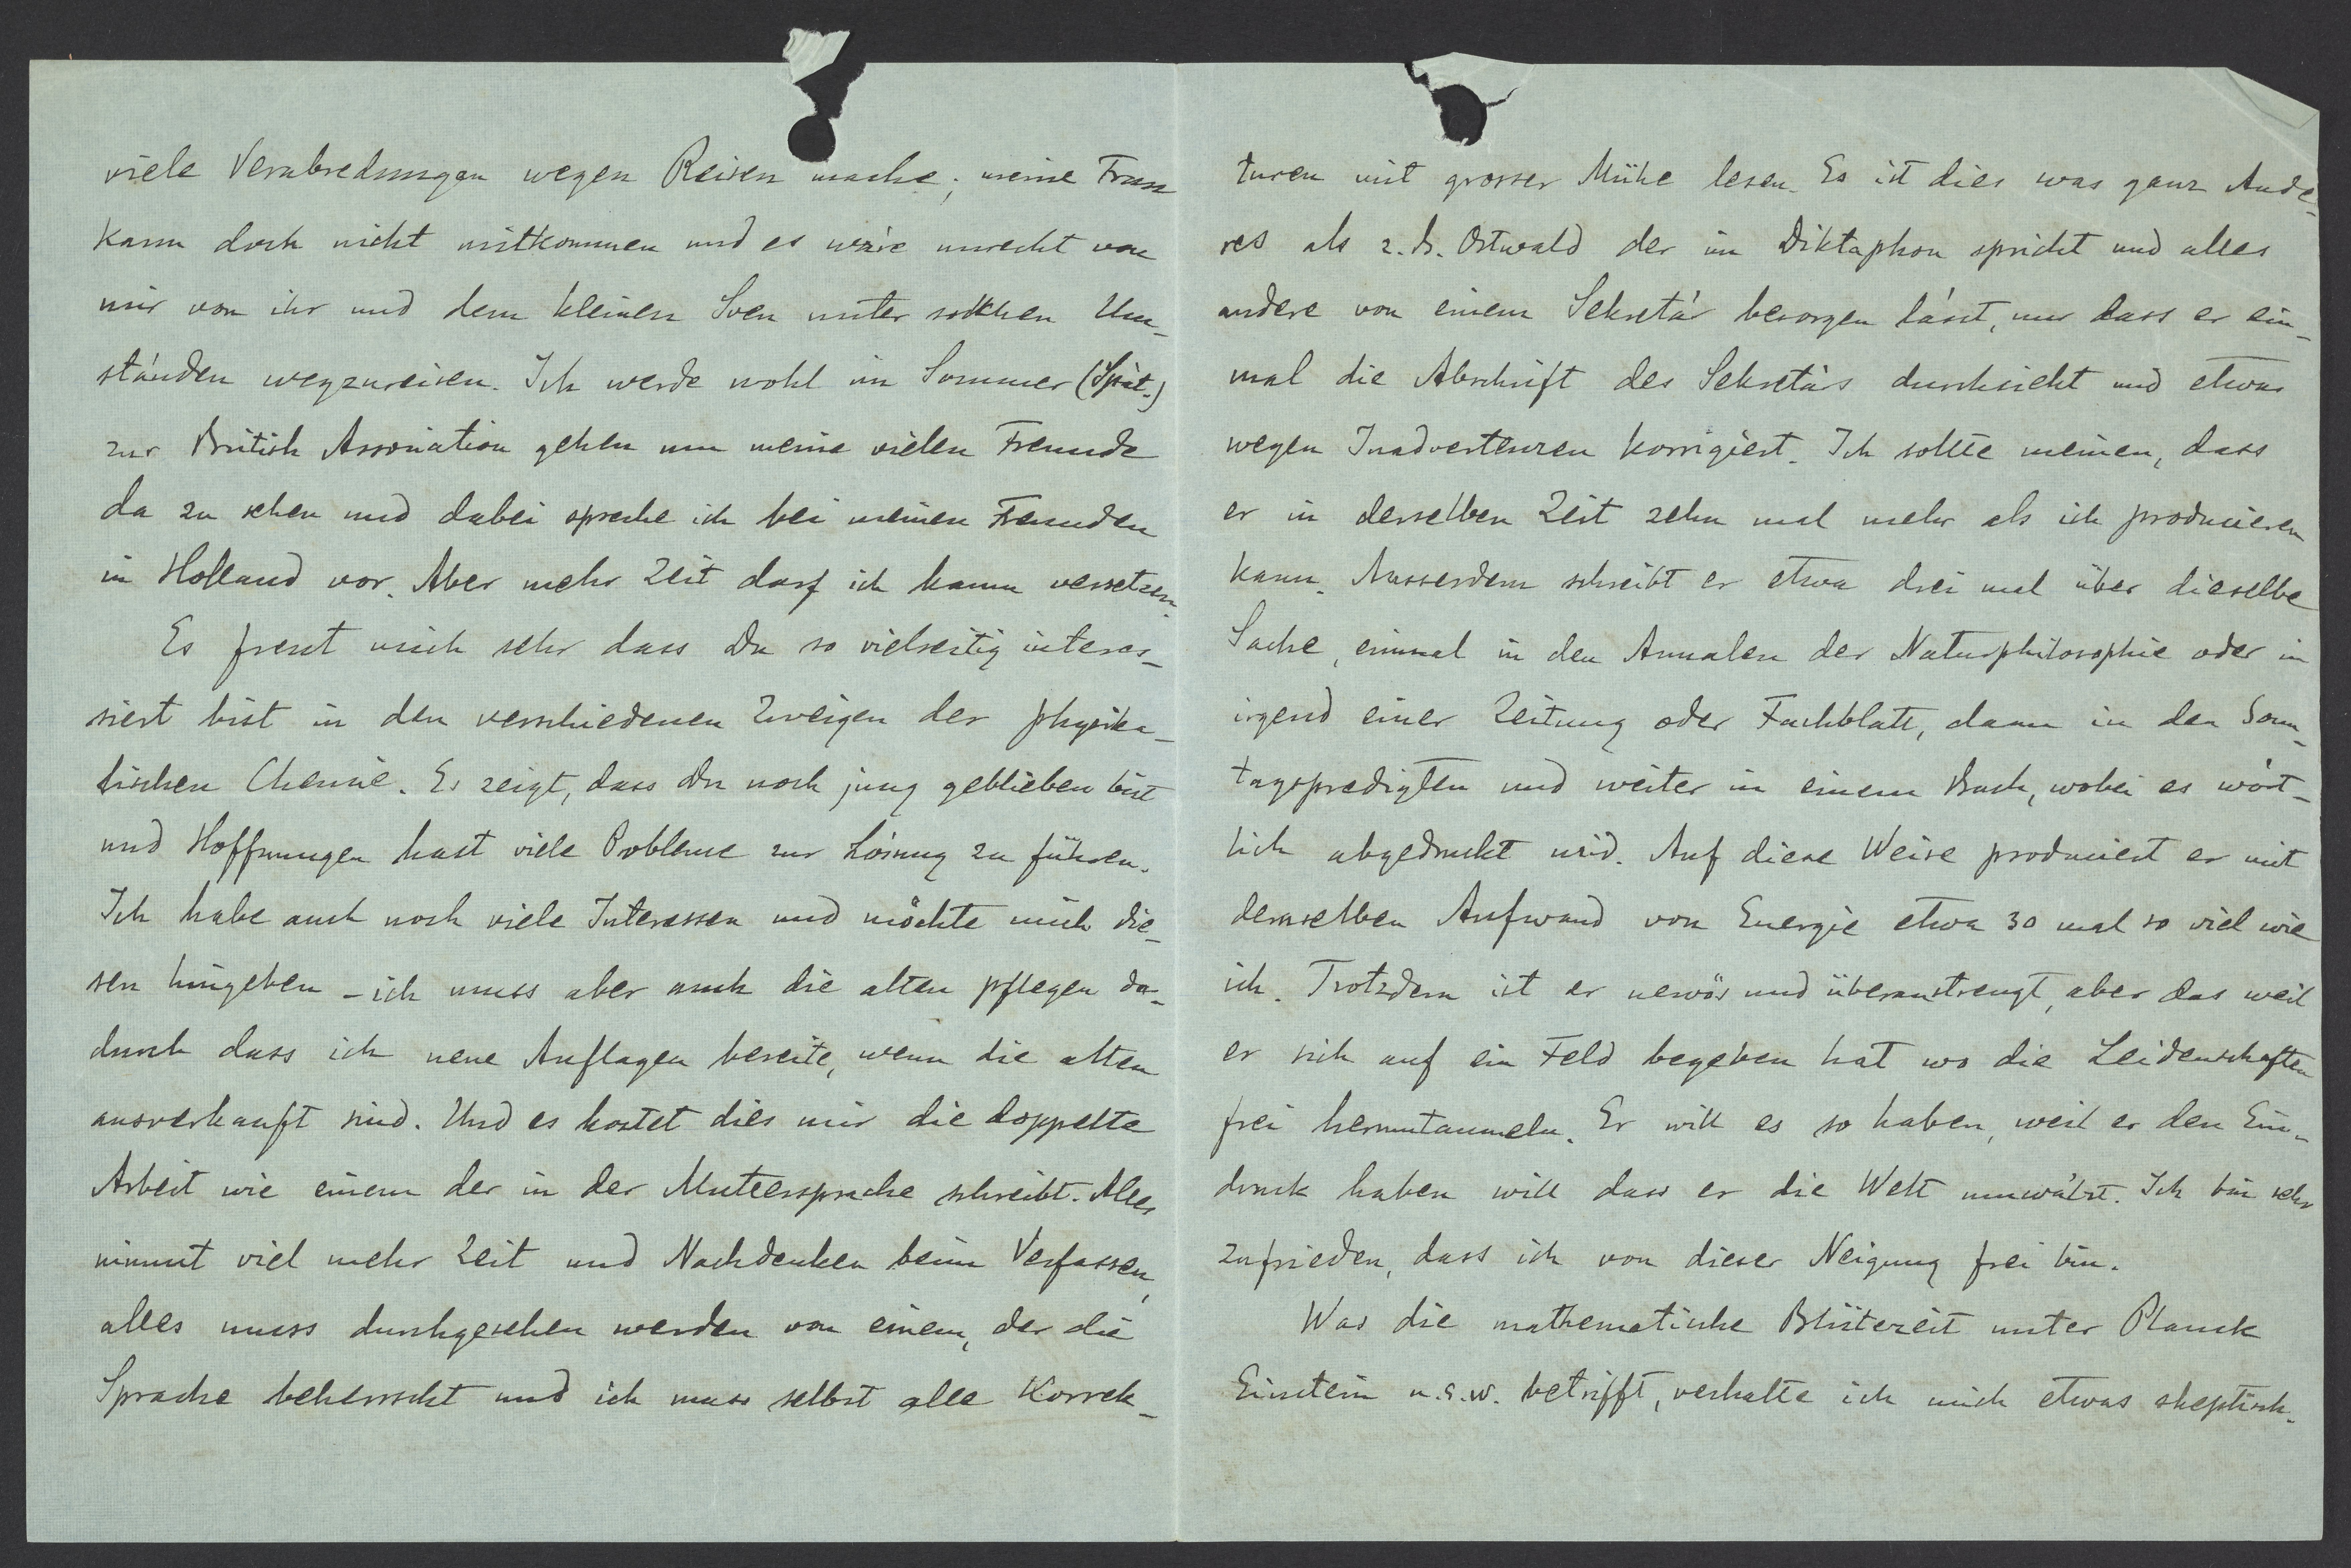 viele Verabredungen wegen Reisen mache; meine Frau
kann doch nicht mitkommen und es wäre unrecht von
mir von ihr und dem kleinen Sven unter solchen Um-
ständen wegzureisen. Ich werde wohl im Sommer (Spät-)
zur British Association gehen um meine vielen Freunde
da zu sehen und dabei spreche ich bei meinen Freunden
in Holland vor. Aber mehr Zeit darf ich kaum versetzen.
Es freut mich sehr dass Du so vielseitig interes-
siert bist in den verschiedenen Zweigen der physika-
lischen Chemie. Es zeigt, dass Du noch jung geblieben bist
und Hoffnungen hast viele Probleme zur Lösung zu führen.
Ich habe auch noch viele Interessen und möchte mich die-
sen hingeben - ich muss aber auch die alten pflegen da-
durch dass ich neue Auflagen bereite, wenn die alten
ausverkauft sind. Und es kostet dies mir die doppelte
Arbeit wie einem der in der Muttersprache schreibt. Alles
nimmt viel mehr Zeit und Nachdenken beim Verfassen,
alles muss durchgesehen werden von einem, der die
Sprache beherrscht und ich muss selbst alle Korrek-
turen mit grosser Mühe lesen. Es ist dies was ganz Ande-
res als z.B. Ostwald der im Diktaphon spricht und alles
andere von einem Sekretär besorgen lässt, nur dass er ein-
mal die Abschrift des Sekretärs durchsieht und etwas
wegen Inadvertenzen korrigiert. Ich sollte meinen, dass
er in derselben Zeit zehn mal mehr als ich producieren
kann. Ausserdem schreibt er etwa drei mal über dieselbe
Sache, einmal in den Annalen der Naturphilosophie oder in
irgend einer Zeitung oder Fachblatt, dann in den Sonn-
tagspredigten und weiter in einem Buch, wobei es wört-
lich abgedruckt wird. Auf diese Weise produciert er mit
demselben Aufwand von Energie etwa 30 mal so viel wie
ich. Trotzdem ist er nervös und überanstrengt, aber das weil
er sich auf ein Feld begeben hat wo die Leidenschaften
frei herumtaumeln. Er will es so haben, weil er den Ein-
druck haben will dass er die Welt umwälzt. Ich bin sehr
zufrieden, dass ich von dieser Neigung frei bin.
Was die mathematische Blütezeit unter Planck
Einstein u.s.w. betrifft, verhalte ich mich etwas skeptisch.